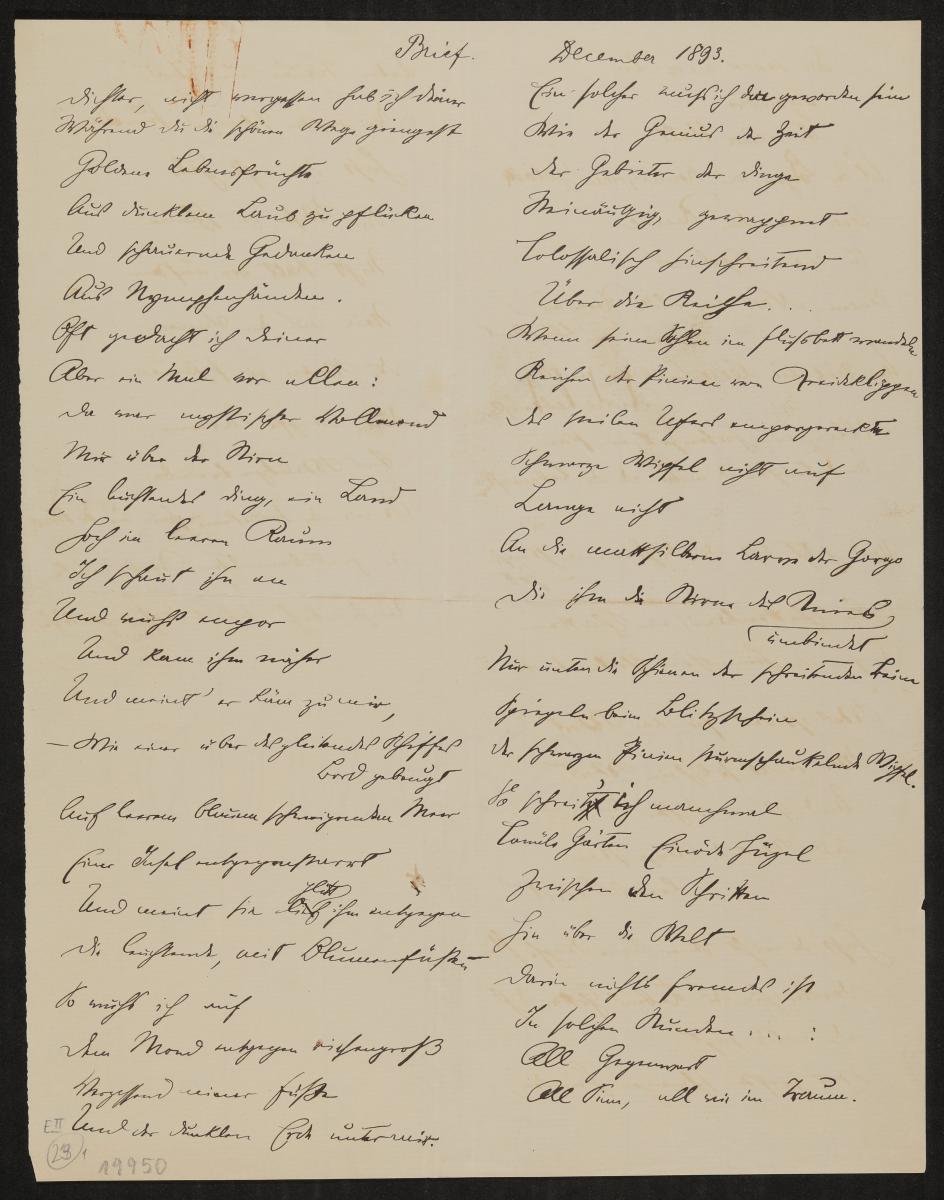 Brief.
December 1893.
Dichter, nicht vergessen hab ich deiner
Während du die schönen Wege giengest
Goldene Lebensfrüchte
Aus dunklem Laub zu pflücken
Und schauernde Gedanken
Aus Nymphenhänden.
Oft gedacht ich deiner
Aber ein Mal vor allen:
Da war mystischer Vollmond
Mir über der Stirn
Ein leuchtendes Ding, ein Land
Hoch im leeren Raum
Ich schaut ihn an
Und wuchs empor
Und kam ihm näher
Und meint' er käm zu mir,
– Wie einer über des gleitenden Schiffes
Bord gebeugt
Auf leerem blauen schweigenden Meer
Einer Insel entgegenstarrt
Und meint sie glitt ihm entgegen
Die leuchtende, mit Blumenfüßen
So wuchs ich auf
Dem Mond entgegen riesengroß
Vergessend meiner Füße
Und der dunklen Erde unter mir.
Ein solcher muss ich da geworden sein
Wie der Genius der Zeit
Der Gebieter der Dinge
Steinäugig, gewappnet
Colossalisch hinschreitend
Über die Reiche...
Wenn seine Sohlen im Flussbett wandeln
Reichen der Pinien von Kreideklippen
Des steilen Ufers emporgereckte
Schwarze Wipfel nicht auf
Lange nicht
An die mattsilberne Larve der Gorgo
Die ihm die Stirne des Knies
umbindet
Nur unten die Schienen der schreitenden Beine
Spiegeln beim Blitzschein
Der schwarzen Pinien sturmschaukelnde Wipfel.
So schreit ich manchmal
Tamile Gärten Einöde Hügel
Zwischen den Schritten
Hin über die Welt
Darin nichts fremdes ist
In solchen Stunden...:
All Gegenwart
All Sinn, all wie im Traum.
E II
23 1
19950